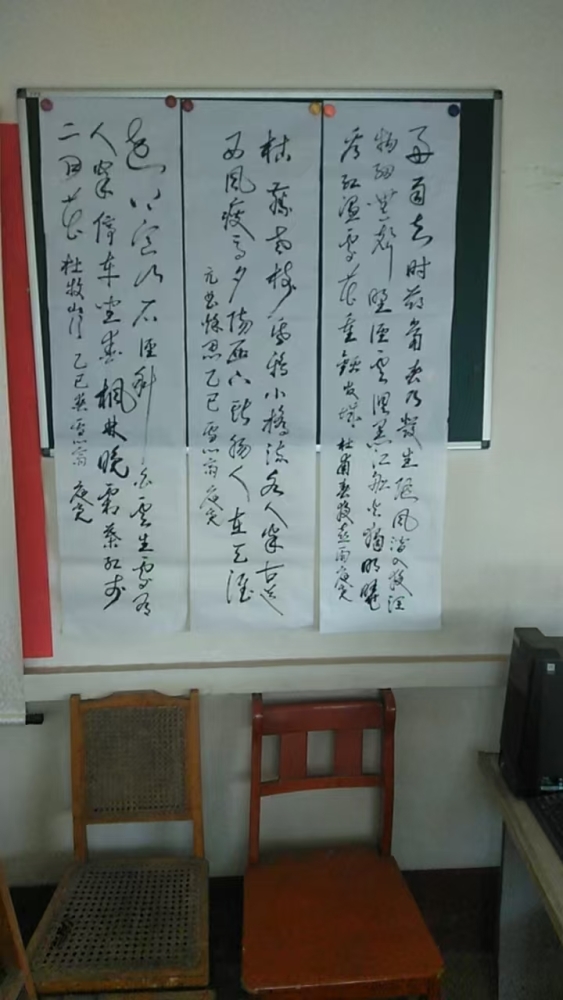 好雨知时节当春乃发生随风潜入夜润
物细無聲野径雲俱黑江船火独明晓
看红湿處花重锦官城 杜甫春夜喜雨
枯藤老树昏鸦小桥流水人家古道
西风瘦马夕阳西下断肠人在天涯
元曲秋思乙巳
远上寒山石径斜白雲生處有
人家停车坐爱枫林晚霜叶红于
二月花 杜牧山行 乙巳